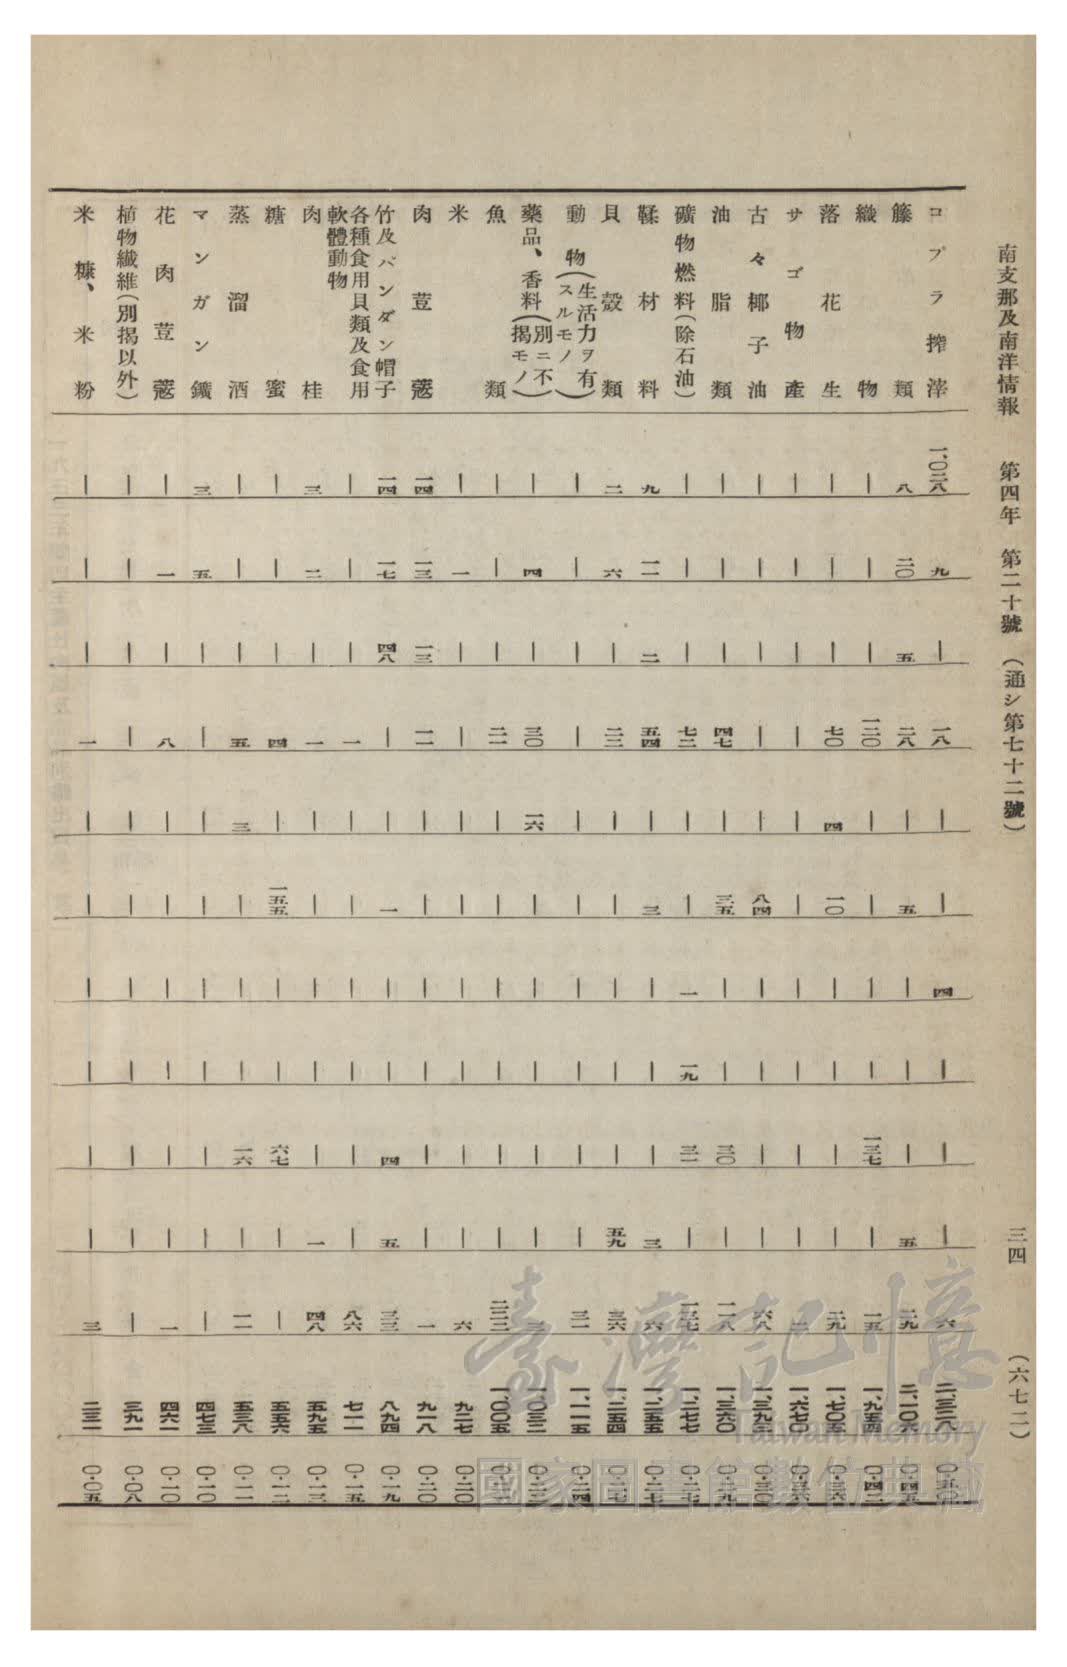 南支那及南洋情報　第四年　第二十號　（通シ第七十二號）　三四　（六七二）
コプラ搾滓　一、〇二八　九　｜　一八　｜　｜　四　｜　｜　｜　六
籐類　八　二〇　五　二八　｜　五　｜　｜　｜　五　二九
織物　｜　｜　｜　一二〇　｜　｜　｜　｜　一三七　｜　一五　一、九五四　〇・四二
落花生　｜　｜　｜　七〇　四　一〇　｜　｜　｜　｜　二九
サゴ物産　｜　｜　｜　｜　｜　｜　｜　｜　｜　｜
古々椰子油　｜　｜　｜　｜　｜　八四　｜　｜　｜　｜　六八
油脂類　｜　｜　｜　四七　｜　三五　｜　｜　三〇　｜　一一八　一、三六〇
礦物燃料（除石油）　｜　｜　｜　七二　｜　｜　一　一九　三一　｜　一、二七七　〇・二七
鞣材料　九　一一　二　五四　｜　三　｜　｜　｜　三　六　一、二五五　〇・二七
貝殼類　二　六　｜　二三　｜　｜　｜　｜　｜　五九　三六　一、二五四　〇・二七
動物（生活力ヲ有スルモノ）　｜　｜　｜　｜　｜　｜　｜　｜　｜　｜　三一　一、一一五　〇・二四
藥品、香料（別ニ不揭モノ）　｜　四　｜　三〇　一六　｜　｜　｜　｜　｜
魚類　｜　｜　｜　二一　｜　｜　｜　｜　｜　｜　一、〇〇五
米　｜　一　｜　｜　｜　｜　｜　｜　｜　｜　六　九二七　〇・二〇
肉荳蔲　一四　一三　一三　一一　｜　｜　｜　｜　｜　｜　一　九一八　〇・二〇
竹及パンダン帽子　一四　一七　四八　｜　｜　一　｜　｜　四　五　三三　八九四　〇・一九
各種食用貝類及食用軟體動物　｜　｜　｜　一　｜　｜　｜　｜　｜　｜　八六　七一一　〇・一五
肉桂　三　二　｜　一　｜　｜　｜　｜　｜　一　四八　五九五　〇・一三
糖蜜　｜　｜　｜　四　｜　一五五　｜　｜　六七　｜　｜　五五六　〇・一二
蒸溜酒　｜　｜　｜　五　三　｜　｜　｜　一六　｜　一一　五三八　〇・一一
マンガン鑛　三　五　｜　｜　｜　｜　｜　｜　｜　｜　｜　四七三　〇・一〇
花肉荳蔲　｜　一　｜　八　｜　｜　｜　｜　｜　｜　一　四六一　〇・一〇
植物纖維（別揭以外）　｜　｜　｜　｜　｜　｜　｜　｜　｜　｜　｜　三九一　〇・〇八
米糠、米粉　｜　｜　｜　一　｜　｜　｜　｜　｜　｜　三　二三一　〇・〇五
臺灣記憶
Taiwan Memory
國家圖書館數位典藏